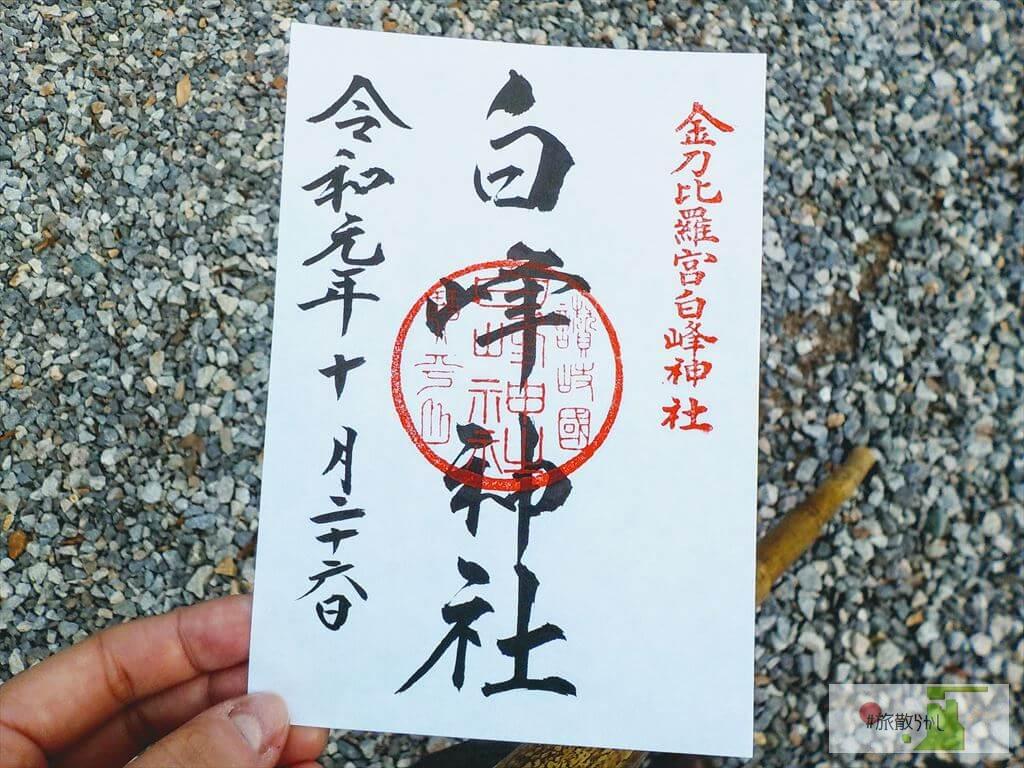 金刀比羅宮白峰神社
白峰神社
讃岐國
令和元年十月二十六日
#旅散らかし